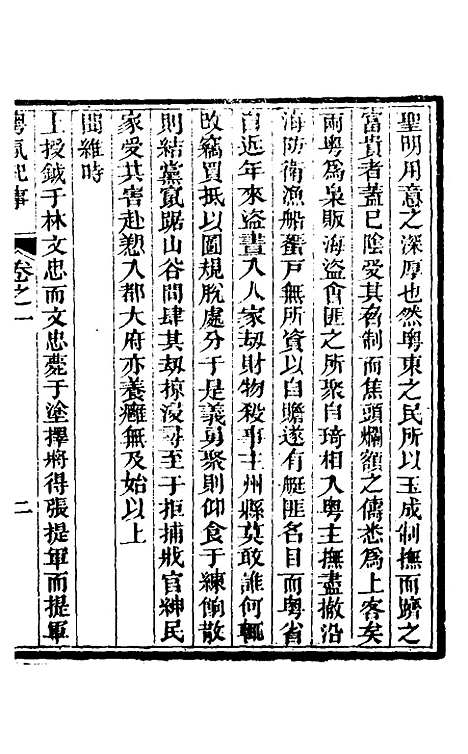 聖明用意之深厚也然粵東之民所以玉成制撫而躋之
富貴者蓋已陰受其害制而焦頭爛額之儔悉為上客矣
兩粵為梟販海盜會匪之所聚自琦相入粵主撫盡撤沿
海防衛漁船蜑戶無所資以自贍遂有艇匪名目而粵省
自近年來盜晝入人家刼財物殺事主州縣莫敢誰何輒
改竊買抵以圖規脫處分于是義勇聚則仰食于練餉散
則結黨鼠踞山谷間肆其刼掠浸尋至于拒捕戕官紳民
家受其害赴愬入都大府亦養癰無及始以上
聞維時
上授鉞于林文忠而文忠薨于塗擇將得張提軍而提軍
粵氛紀事
卷之一
二